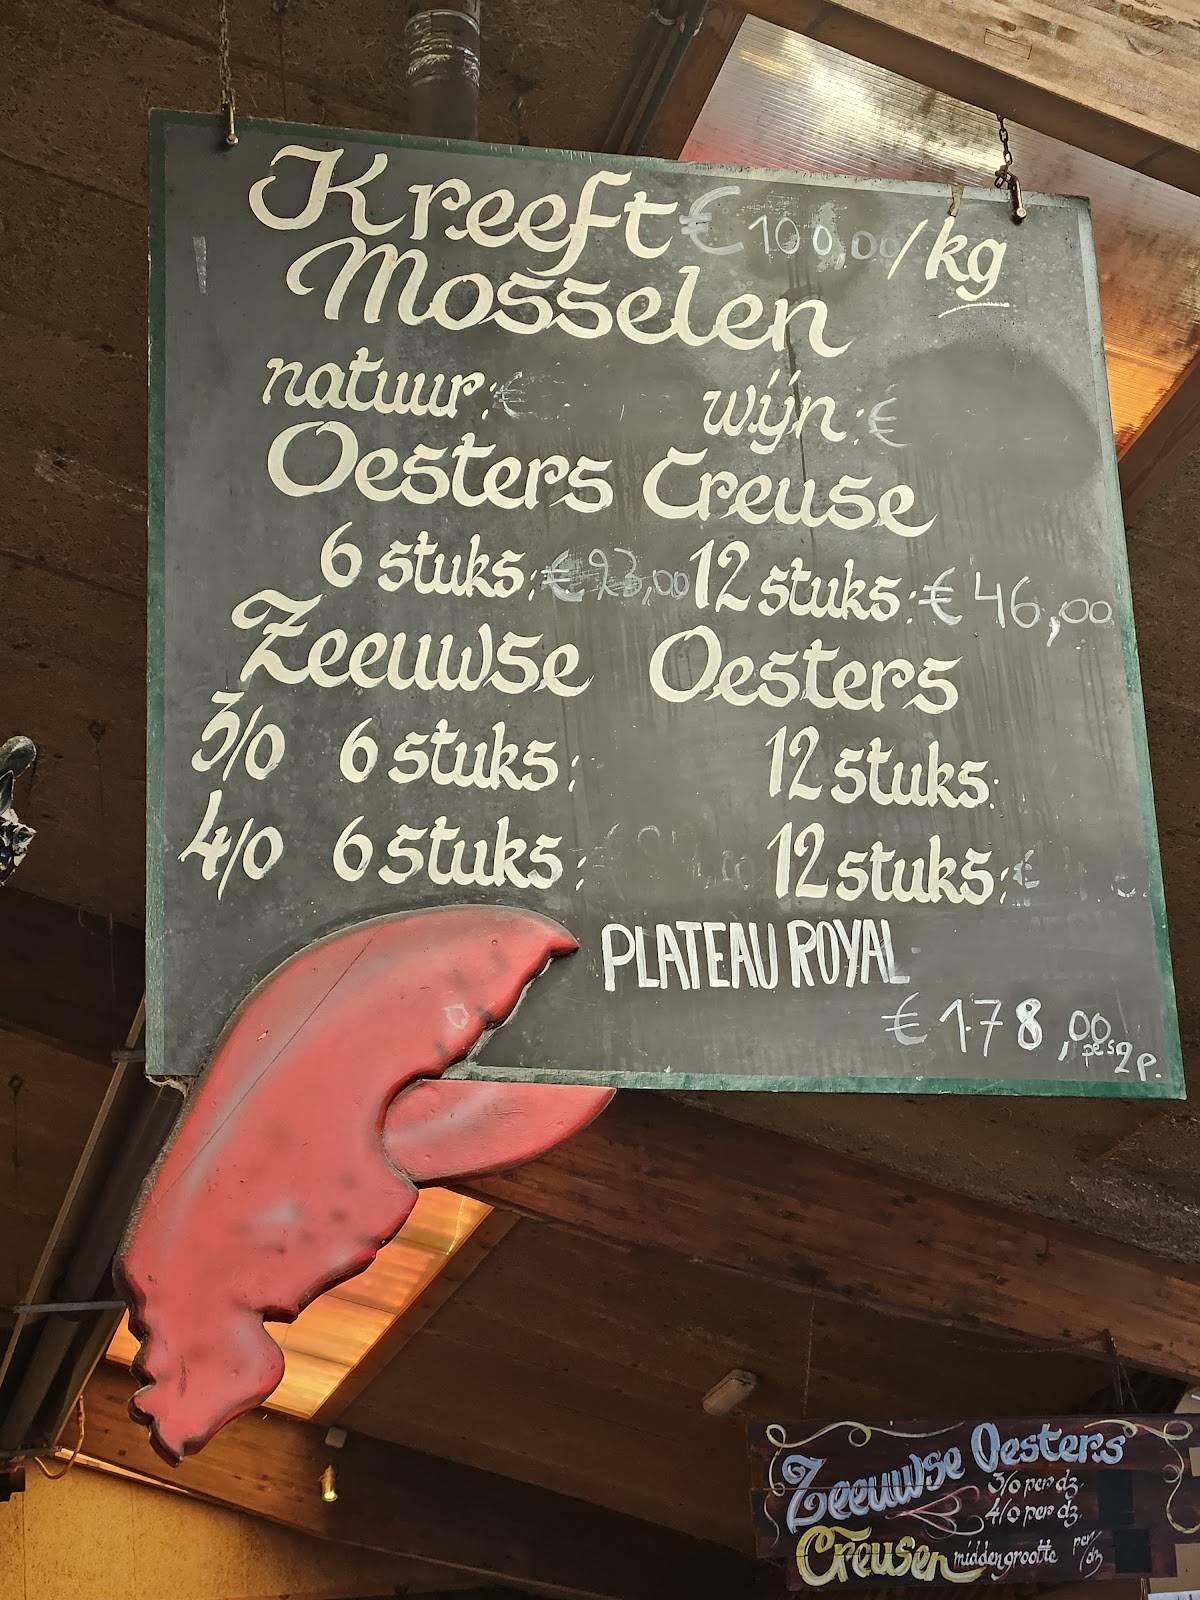 Kreeft € 100,00/kg
Mosselen
natuur: € wijn: €
Oesters Creuse
6 stuks: € 23,00 12 stuks: € 46,00
Zeeuwse Oesters
3/0 6 stuks: 12 stuks:
4/0 6 stuks: 12 stuks: €
PLATEAU ROYAL
€ 178,00
2p.
Zeeuwse Oesters
3/0 per dz.
4/0 per dz.
Creusen middengrootte per/dz